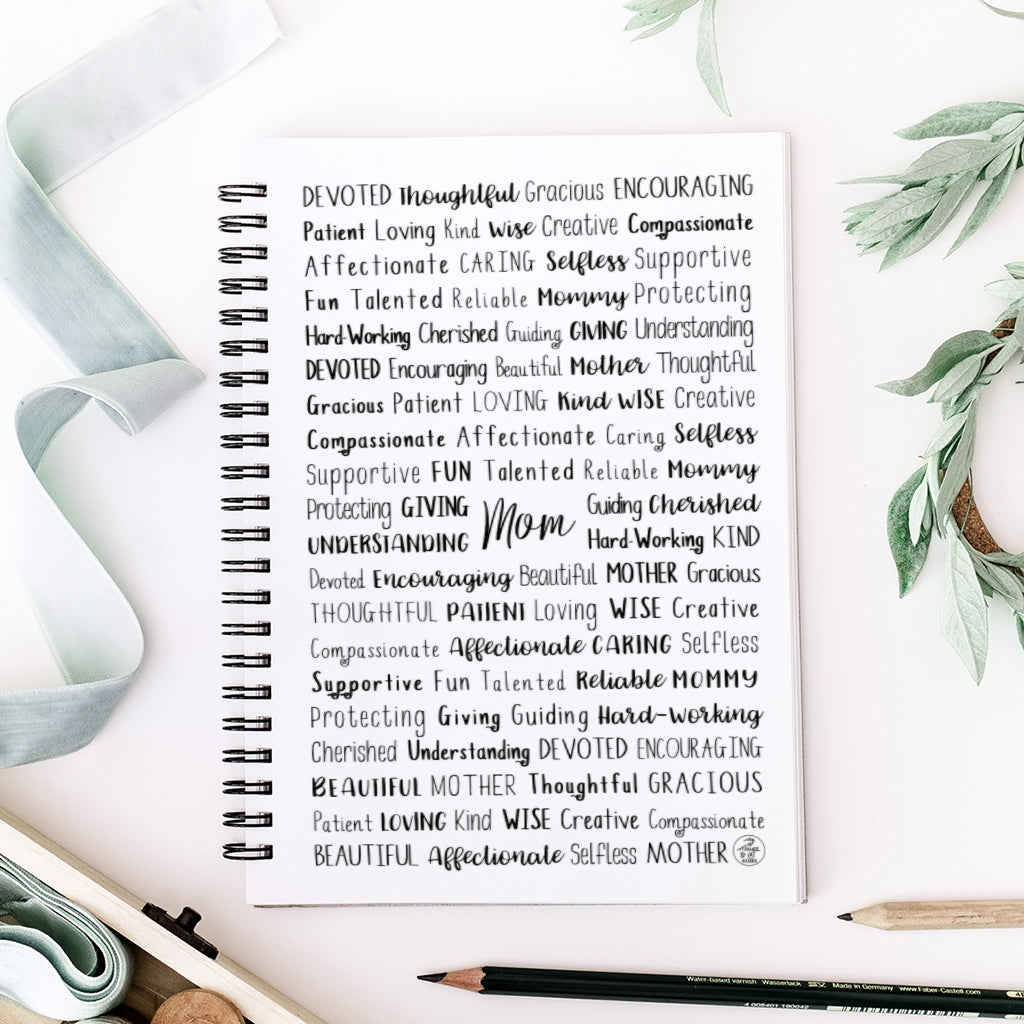 DEVOTED Thoughtful Gracious ENCOURAGING
Patient Loving Kind Wise Creative Compassionate
Affectionate CARING Selfless Supportive
Fun Talented Reliable Mommy Protecting
Hard-Working Cherished Guiding GIVING Understanding
DEVOTED Encouraging Beautiful Mother Thoughtful
Gracious Patient LOVING Kind WISE Creative
Compassionate Affectionate Caring Selfless
Supportive FUN Talented Reliable Mommy
Protecting GIVING
UNDERSTANDING
Mom
Guiding Cherished
Hard-Working KIND
Devoted Encouraging Beautiful MOTHER Gracious
THOUGHTFUL PATIENT Loving WISE Creative
Compassionate Affectionate CARING Selfless
Supportive Fun Talented Reliable MOMMY
Protecting Giving Guiding Hard-working
Cherished Understanding DEVOTED ENCOURAGING
BEAUTIFUL MOTHER Thoughtful GRACIOUS
Patient LOVING Kind WISE Creative Compassionate
BEAUTIFUL Affectionate Selfless MOTHER
Water-based varnish Wasserlack
Made in Germany www.Faber-Castell.com
4 005401 190042